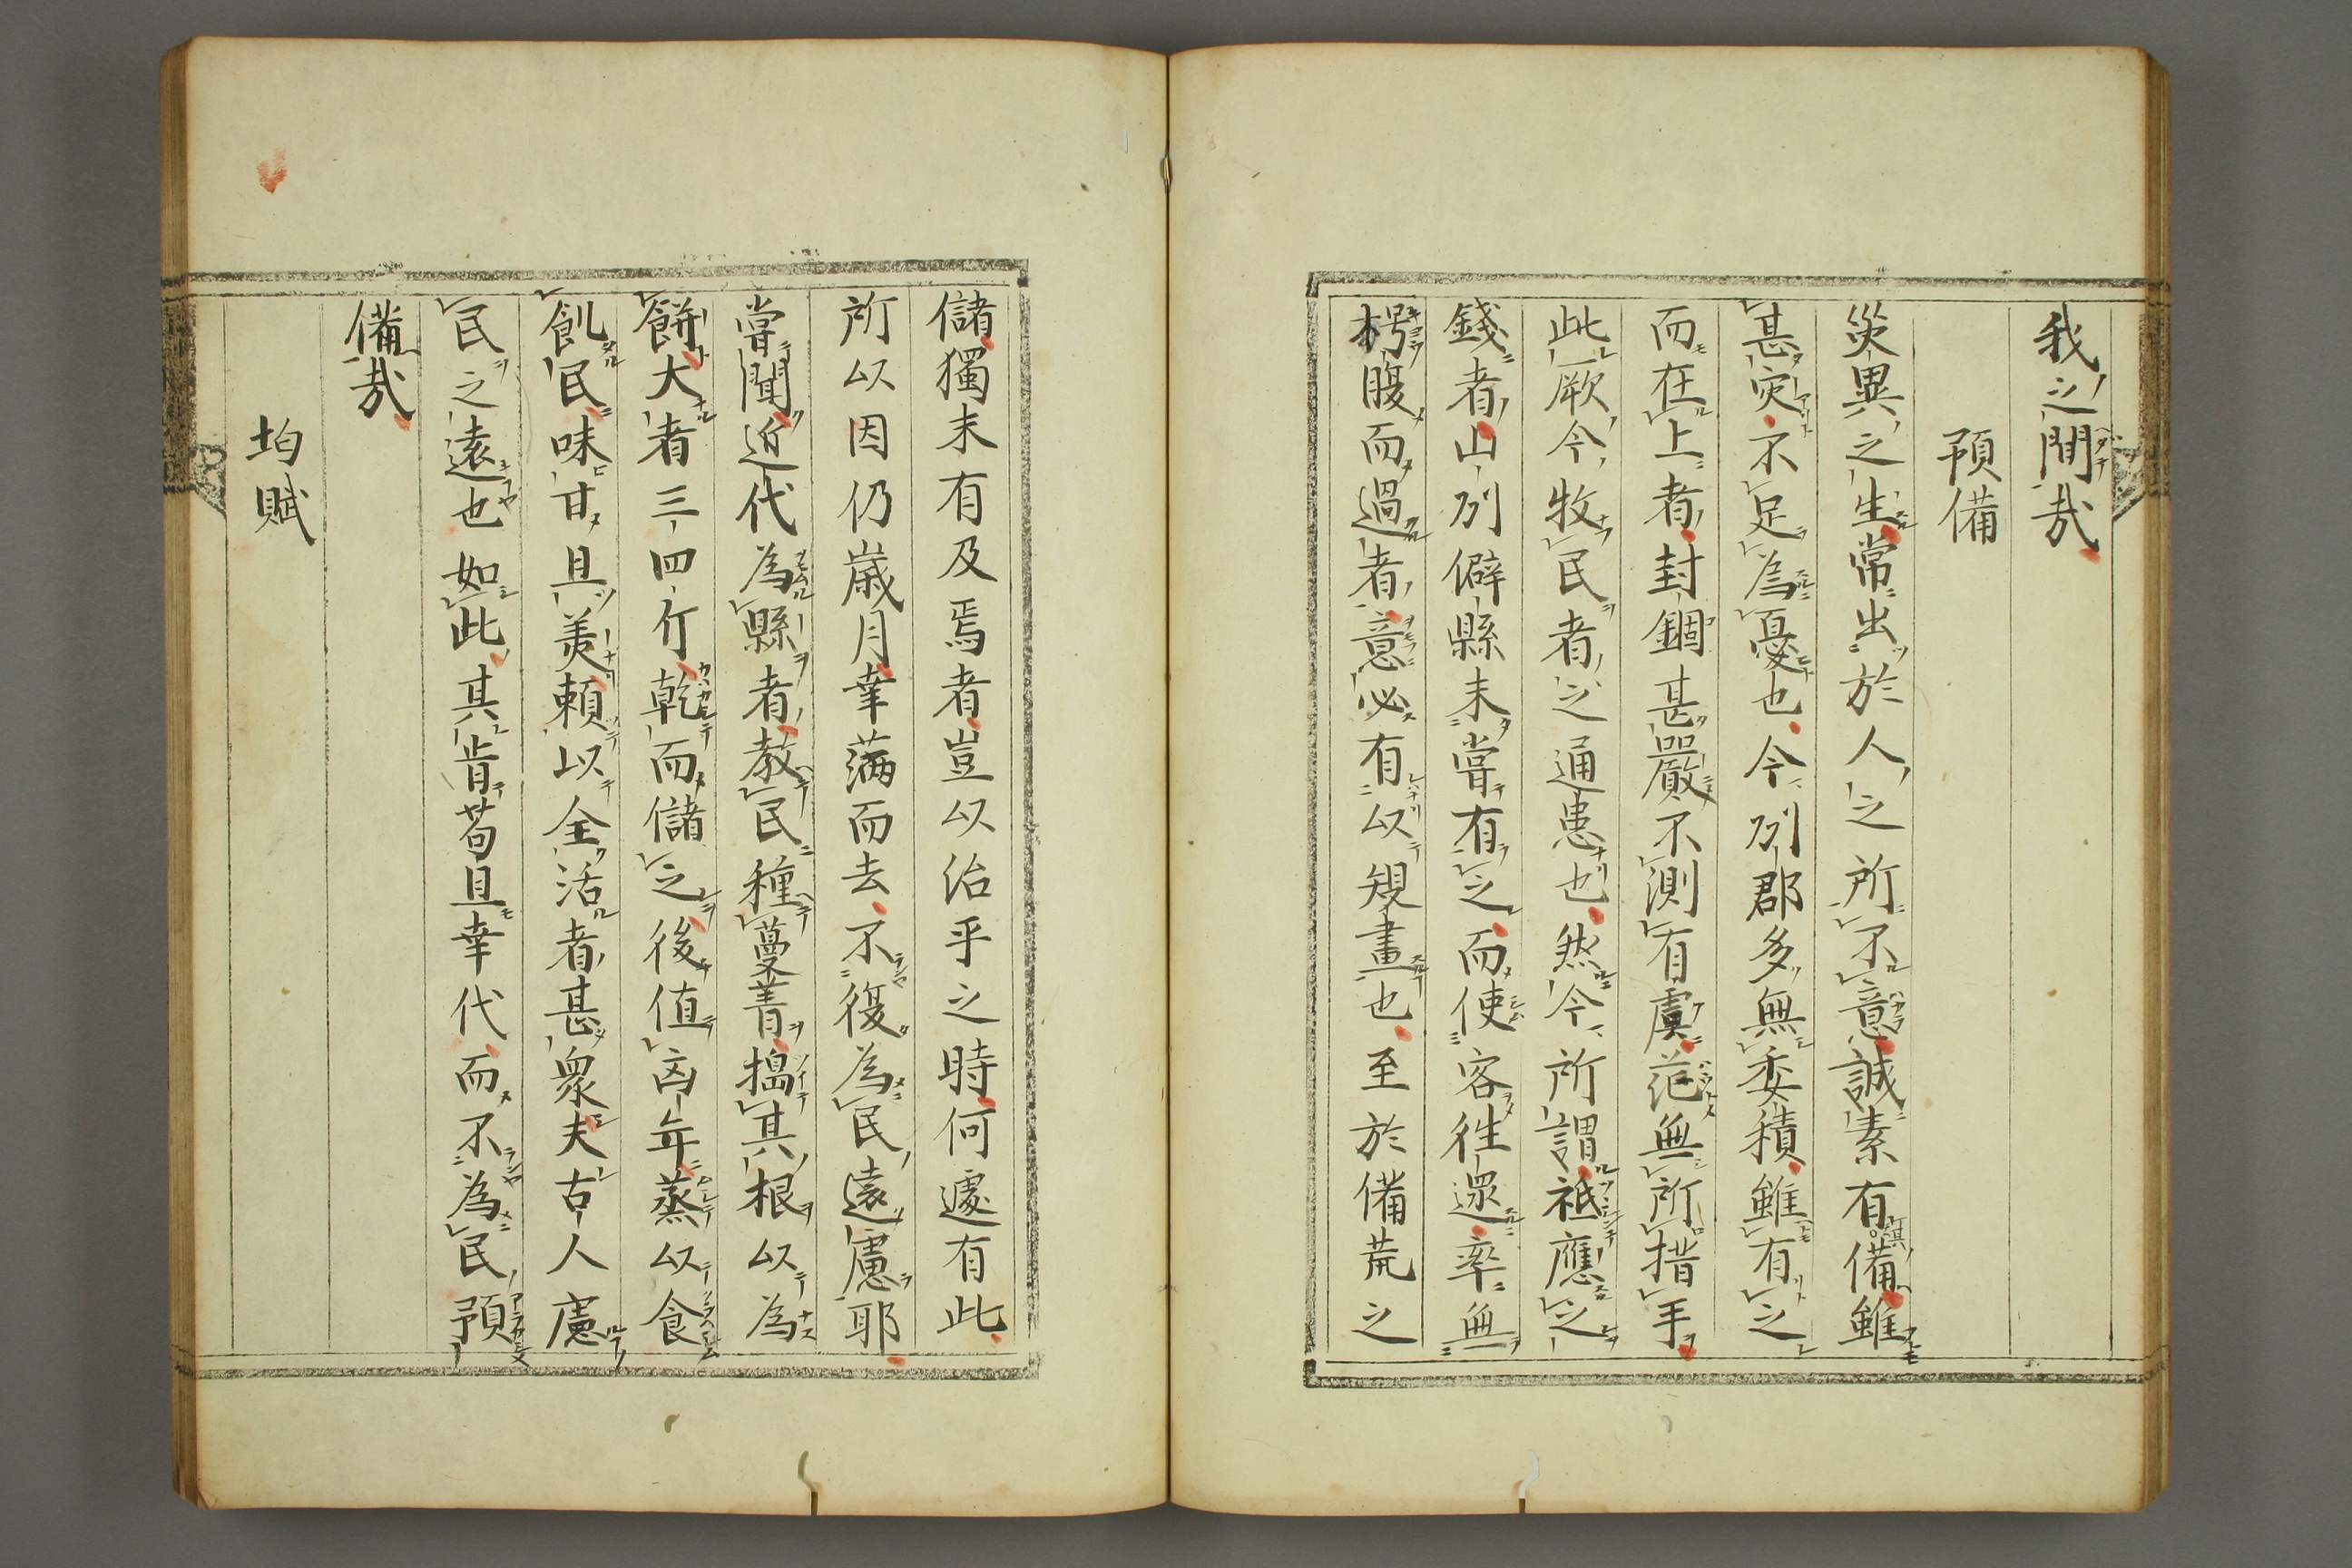 我之間哉
預備
災異之生常出於人之所不意誠素有其備雖
甚灾不足為憂也今列郡多無委積雖有之
而在上者封錮甚嚴不測有虞茫無所措手
此厥今牧民者之通患也然今所謂祗應之
錢者山列僻縣未嘗有之而使客徃還率無
枵腹而過者意必有以規畫也至於備荒之
儲獨未有及焉者豈以治平之時何遽有此
所以因仍歳月幸満而去不復為民遠慮耶
嘗聞近代為縣者教民種蔓菁搗其根以為
餅大者三四斤乾而儲之後值凶年蒸以食
飢民味甘且美頼以全活者甚衆夫古人慮
民之遠也如此其肯苟且幸代而不為民預
備哉
均賦